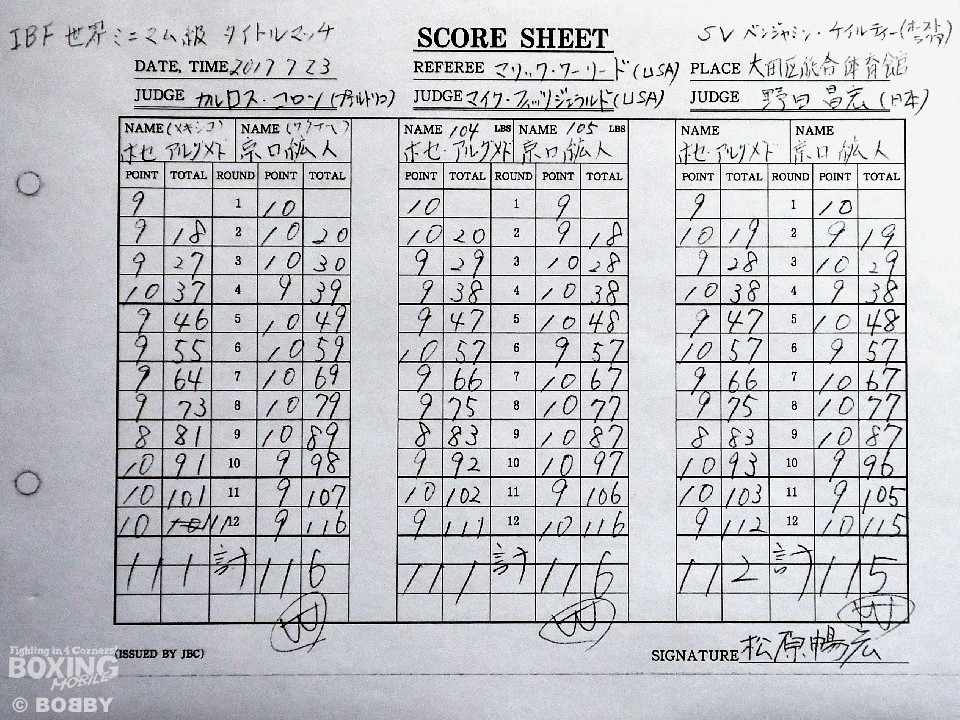 IBF 世界ミニマム級 タイトルマッチ
SCORE SHEET
SV ベンジャミン・ケイルティー(オーストラリア)
DATE, TIME 2017 7 23
REFEREE マリック・ワーリード(USA)
PLACE 大田区総合体育館
JUDGE カルロス・コロン(プエルトリコ)
JUDGE マイク・フィッツジェラルド(USA)
JUDGE 野田昌宏(日本)
NAME (メキシコ) NAME (ワタナベ) NAME 104 LBS NAME 105 LBS NAME NAME
ホセ・アルグメド 京口紘人 ホセ・アルグメド 京口紘人 ホセ・アルグメド 京口紘人
POINT TOTAL ROUND POINT TOTAL POINT TOTAL ROUND POINT TOTAL POINT TOTAL ROUND POINT TOTAL
9 1 10 10 1 9 9 1 10
9 18 2 10 20 10 20 2 9 18 10 19 2 9 19
9 27 3 10 30 9 29 3 10 28 9 28 3 10 29
10 37 4 9 39 9 38 4 10 38 10 38 4 9 38
9 46 5 10 49 9 47 5 10 48 9 47 5 10 48
9 55 6 10 59 10 57 6 9 57 10 57 6 9 57
9 64 7 10 69 9 66 7 10 67 9 66 7 10 67
9 73 8 10 79 9 75 8 10 77 9 75 8 10 77
8 81 9 10 89 8 83 9 10 87 8 83 9 10 87
10 91 10 9 98 9 92 10 10 97 10 93 10 9 96
10 101 11 9 107 10 102 11 9 106 10 103 11 9 105
10 111 12 9 116 9 111 12 10 116 9 112 12 10 115
111 計 116 111 計 116 112 計 115
W W W
(ISSUED BY JBC)
SIGNATURE 松原暢宏
Fighting in 4 Corners
BOXING
MOBILE
© BOBBY